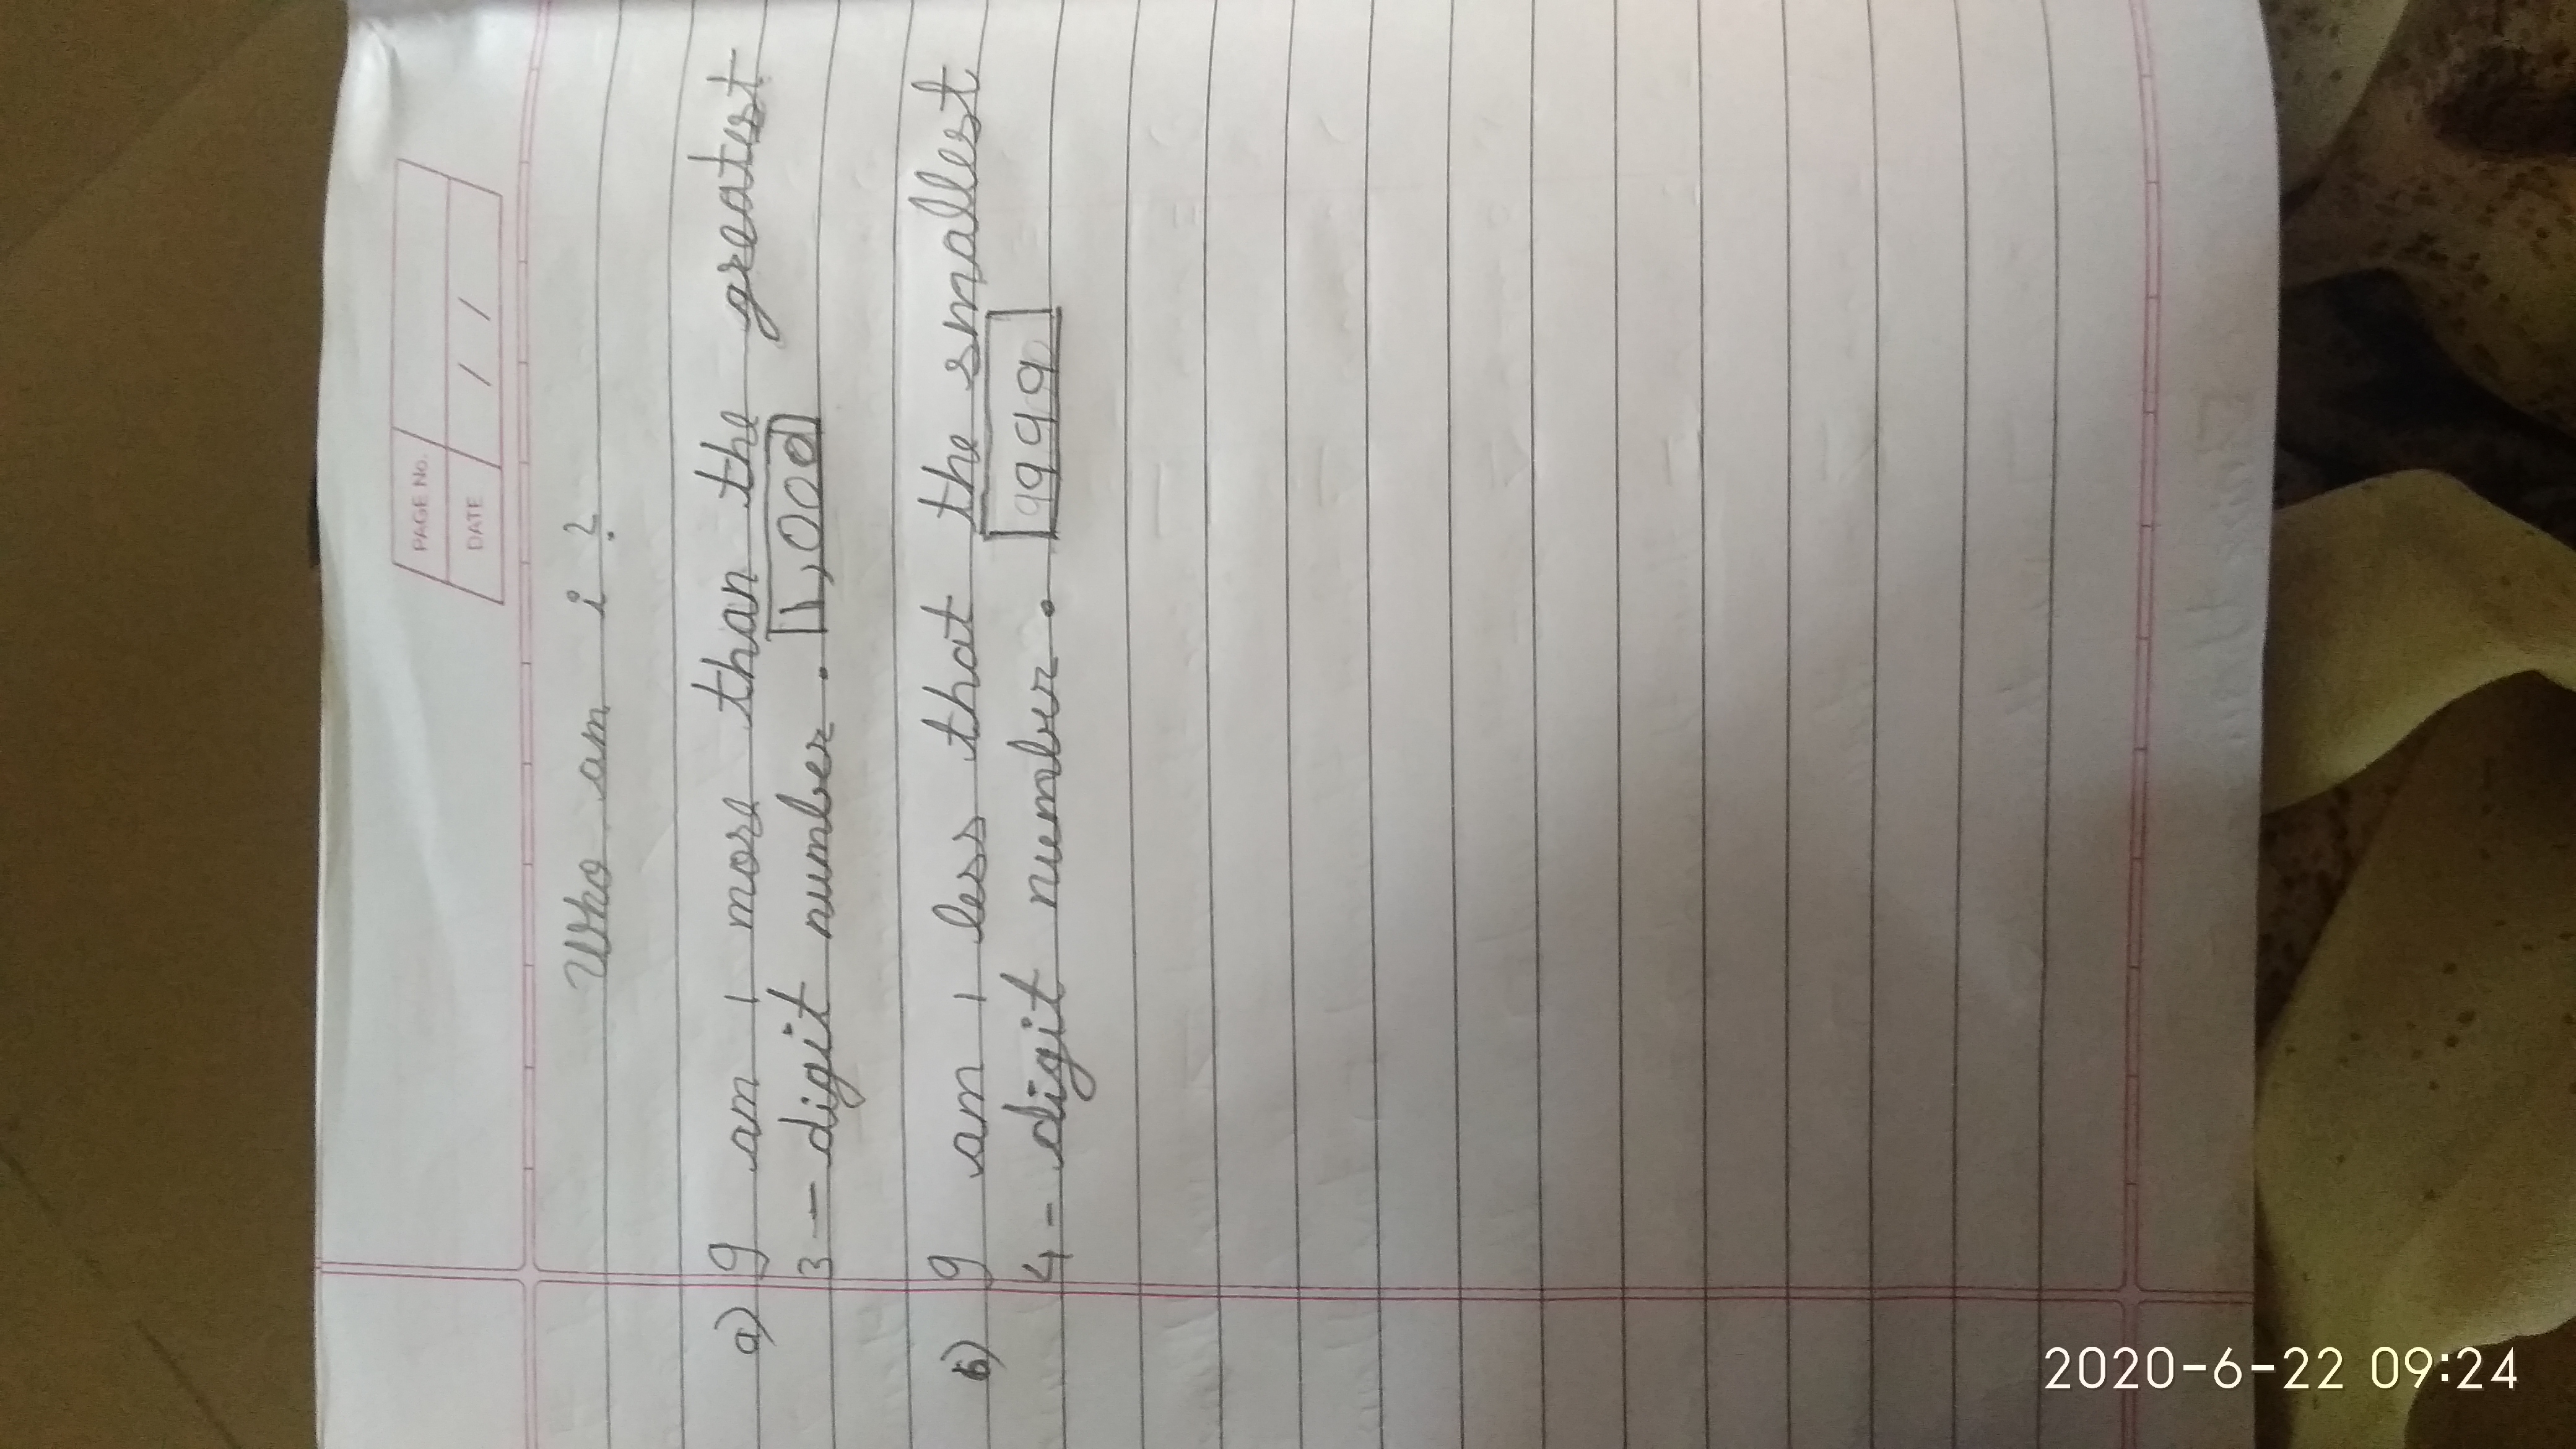 PAGE No.
DATE / /
Who am i ?
a) I am 1 more than the greatest
3 - digit number. 1,000
b) I am 1 less that the smallest
4 - digit number. 9999
2020-6-22 09:24